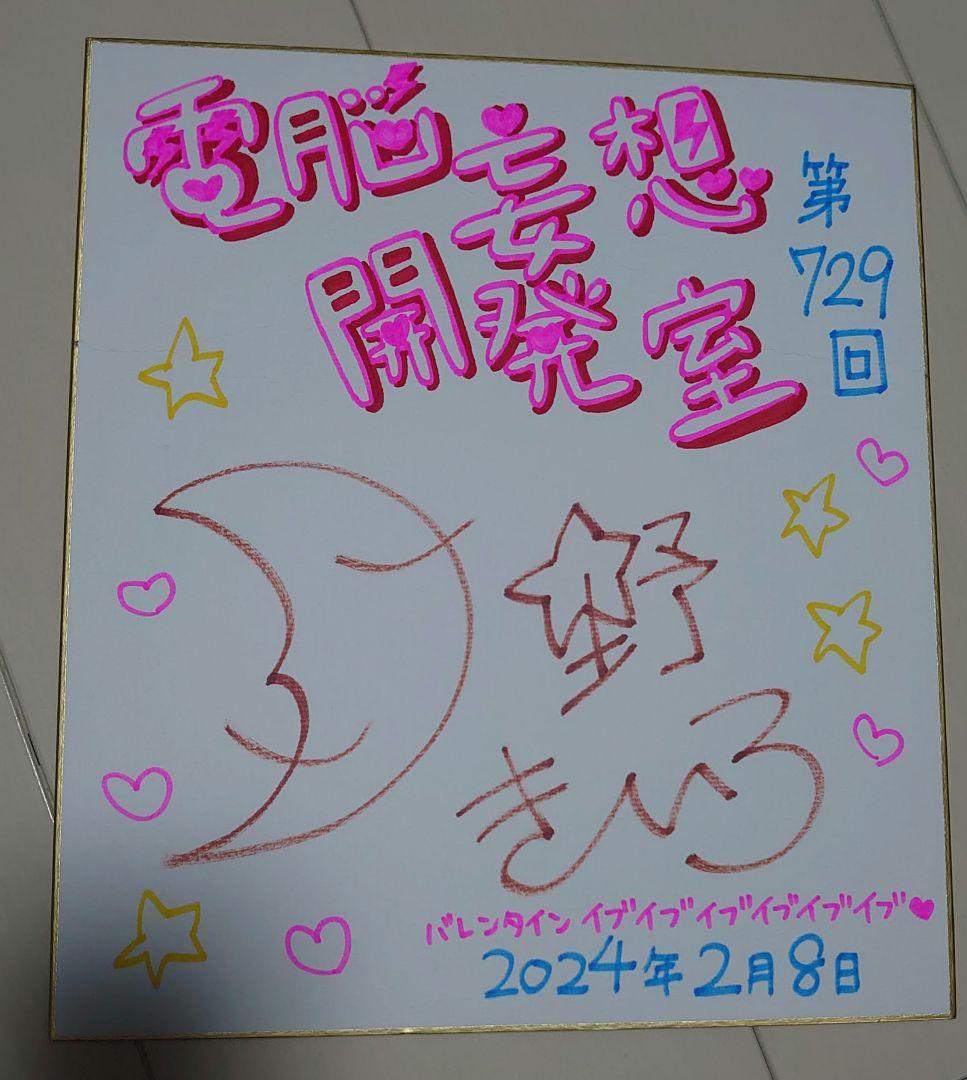 電脳妄想
開発室
第
729
回
月野
きいろ
バレンタイン イブイブイブイブイブイブ
2024年2月8日